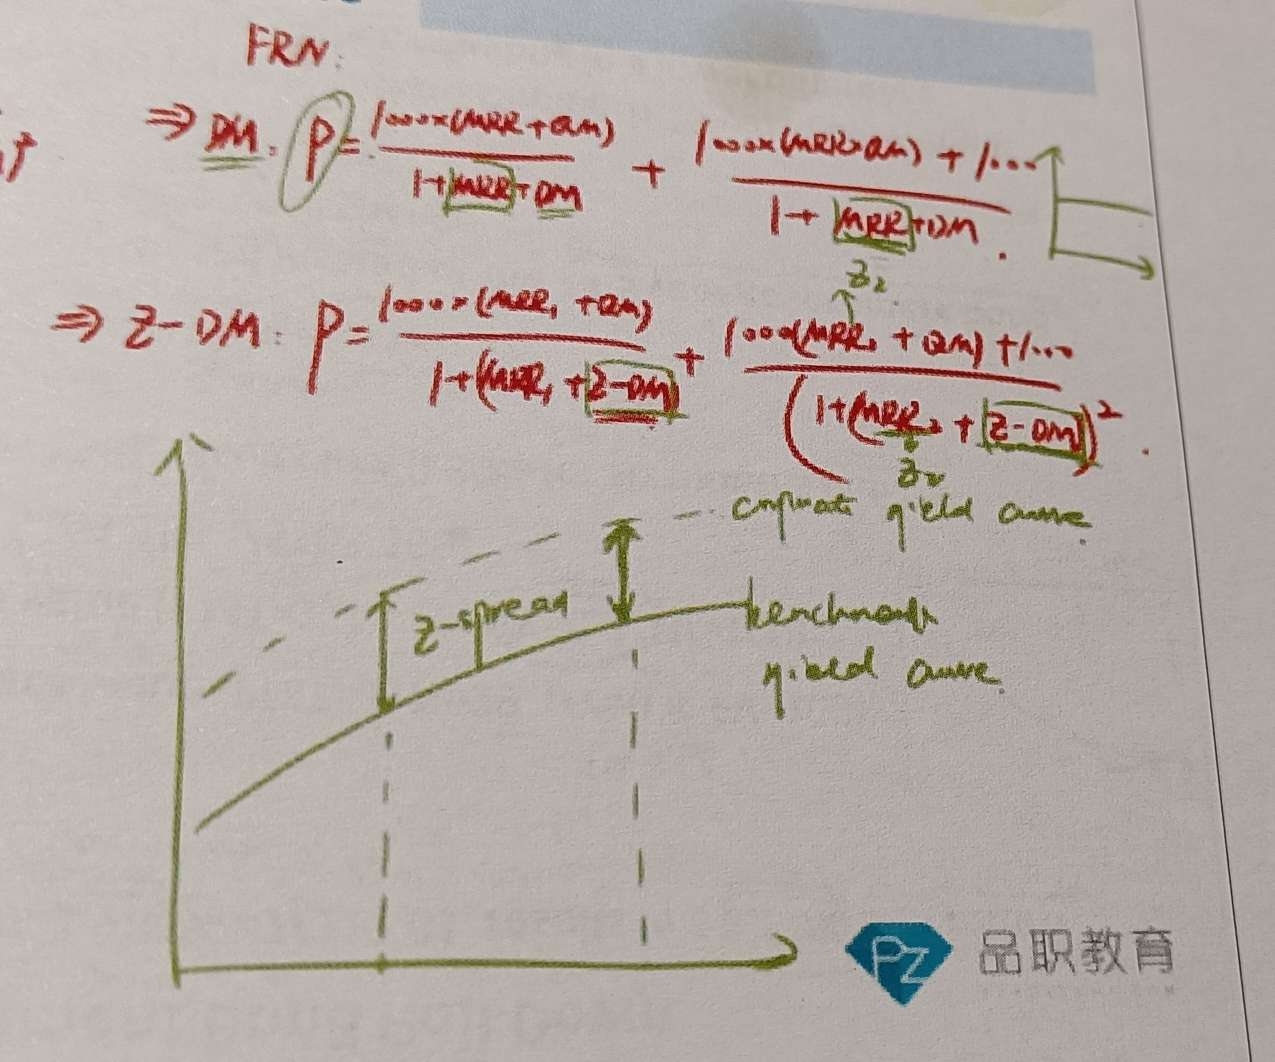 FRN:
⇒ DM: P = 1000×(MRR+QM) / 1+MRR+DM + 1000×(MRR+QM) + 1000 / 1+MRR+DM.
z₂
⇒ Z-DM: P = 1000×(MRR₁+QM) / 1+(MRR₁+Z-DM) + 1000(MRR₂+QM)+1000 / (1+(MRR₂+Z-DM))².
z₂
corporate yield curve
Z-spread
benchmark
yield curve
PZ 品职教育